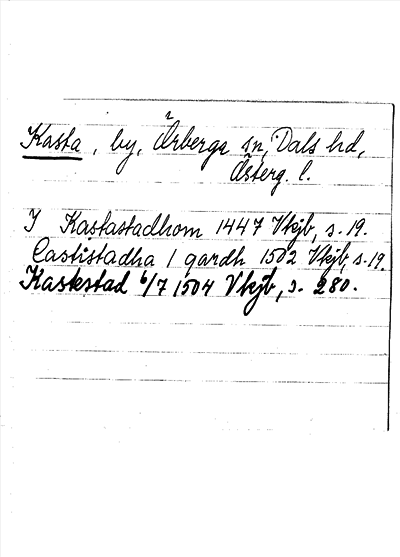 Kasta, by, Örberga sn, Dals hd,
Österg. l.
I Kastastadhom 1447 Vkjb, s. 19.
Castistadha 1 gardh 1502 Vkjb, s. 19.
Kastestad 6/7 1504 Vkjb, s. 280.